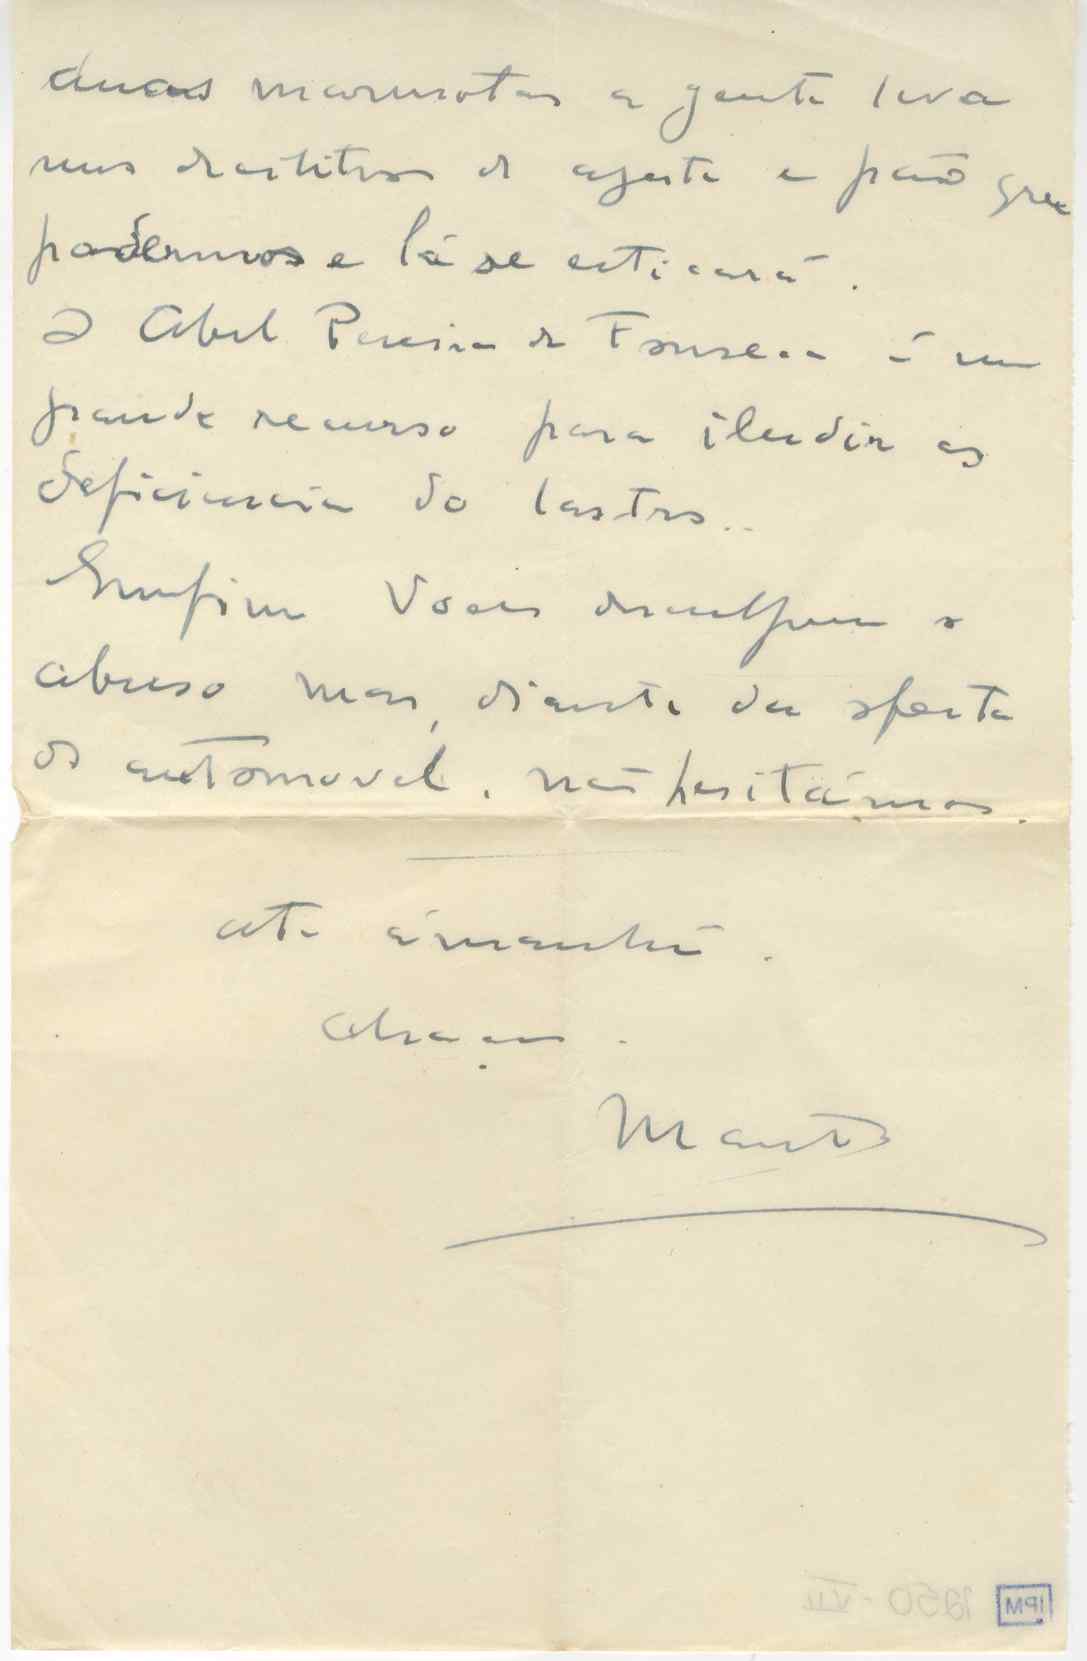 duas marmotas a gente leva
uns decilitros de azeite e pão que
podermos e lá se esticará.
O Abel Pereira da Fonseca é um
grande recurso para iludir as
deficiencia do lastro..
Emfim Vocês desculpem o
abuso mas, diante da oferta
do automovel, não hesitámos.
até ámanhã.
Abraços.
Manta
IPM 1950-VII